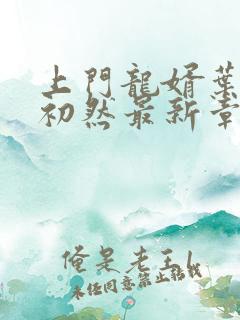 上門龍婿葉
初然最新章
俺是老王l
未经同意禁止转载